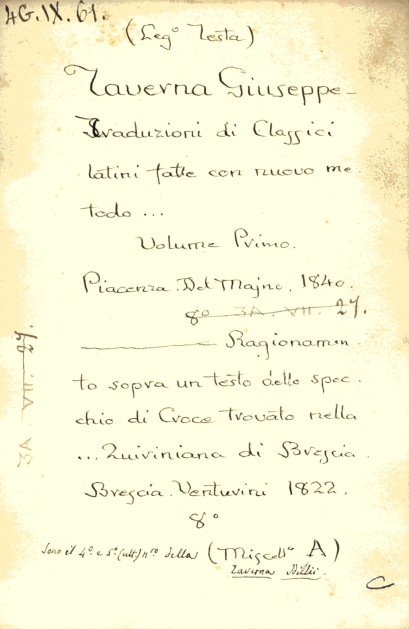 4G.IX.61.
(Leg° Testa)
Taverna Giuseppe -
Traduzioni di Classici
latini fatte con nuovo me
todo ...
Volume Primo.
Piacenza. Del Majno. 1840.
8° 3A. VII. 27.
Ragionamen
to sopra un testo dello spec.
chio di Croce trovato nella
... Quiriniana di Brescia.
Brescia. Venturini 1822.
8°
Sono il 4° e 5° (ult) n.ro della (Miscell° A)
Taverna
C
3A VII 27.